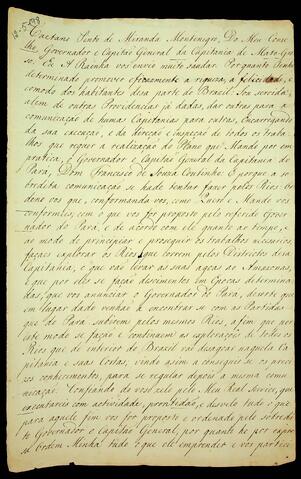 12-5-798
Caetano Pinto de Miranda Montenegro, Do Meu Conse
lho, Governador e Capitão General da Capitania de Mato-Gro
so. Eu A Rainha vos envio muito saudar. Por quanto Tenho
determinado promover efficazmente a riqueza, a felicidade, e
comodo dos habitantes desa parte do Brazil: Sou servida
alem de outras Providencias já dadas, dar outras para a
comunicação de humas Capitanias para outras, Encarregando
da sua execução, e da direção e inspeção de todos os traba
lhos que requer a realização do Plano que Mando por em
pratica, o Governador e Capitão General da Capitania do
Pará, Dom Francisco de Souza Coutinho: E porque a so
bredita comunicação se hade tentar fazer pelos Rios: Or
deno vos que, conformando vos, como Quero e Mando vos
conformeis, com o que vos for proposto pelo referido Gover
nador do Pará, e de acordo com ele quanto ao tempo, e
ao modo de principiar e proseguir os trabalhos necesarios,
façaes explorar os Rios que correm pelos Districtos desa
Capitania, e que vão levar as suas agoas ao Amazonas,
e que por eles se fação descimentos em Epocas determina
das, que vos anunciar o Governador do Pará, de sorte que
em lugar dado venhão a encontrar se com as Partidas
que do Pará subirem pelos mesmos Rios, afim que por
este modo se fação e continuem as explorações de todos os
Rios que do interior do Brazil vão desagoar naquela Ca
pitania e suas Costas, vindo asim a conseguir se os preci
zos conhecimentos, para se regular depois a mesma comu
nicação. Confiando do vosso zelo pelo Meu Real Serviço, que
executareis com actividade, promtidão, e desvelo tudo o que
para aquele fim vos for proposto e ordenado pelo sobredi
to Governador e Capitão General, por quanto he por expre
sa Ordem Minha tudo o que ele emprender e vos partici